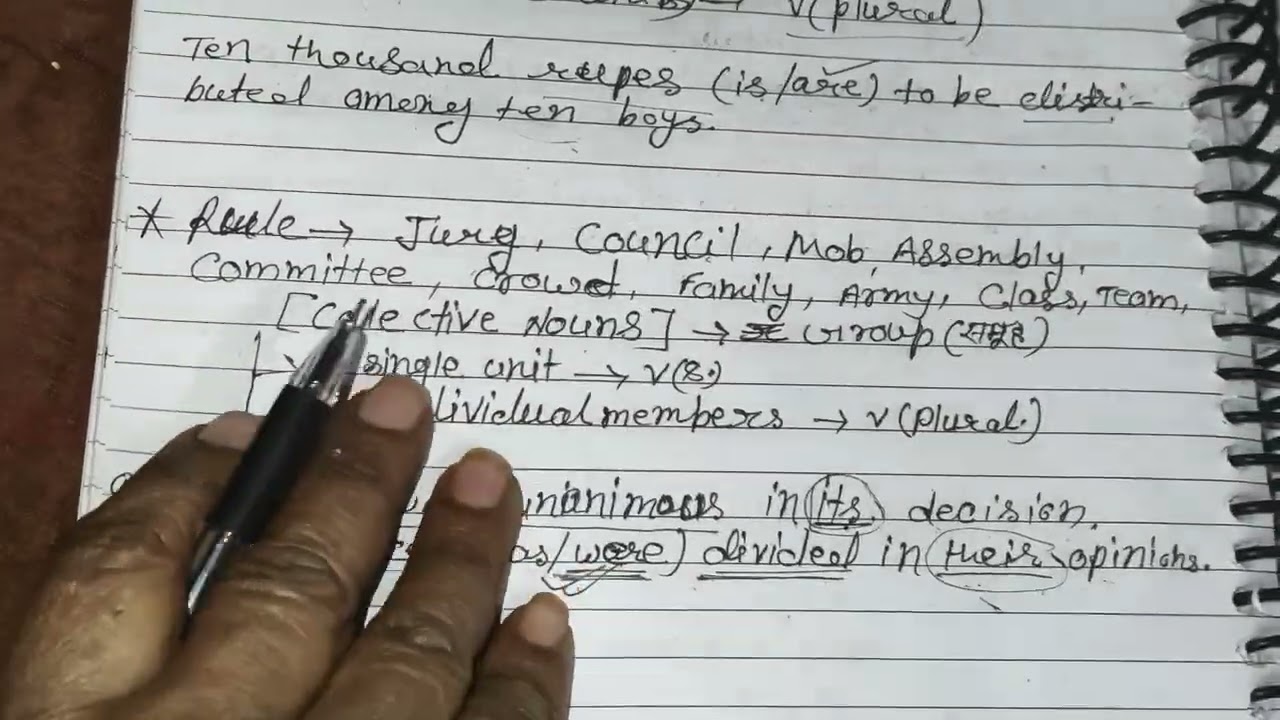 V(plural)
Ten thousand rupees (is/are) to be distri-
buted among ten boys.
* Rule → Jury, Council, Mob, Assembly,
Committee, Crowd, Family, Army, Class, Team,
[Collective Nouns] → Group (समूह)
single unit → V(S.)
dividual members → V(plural.)
unanimous in its decision.
as/were) divided in their opinions.